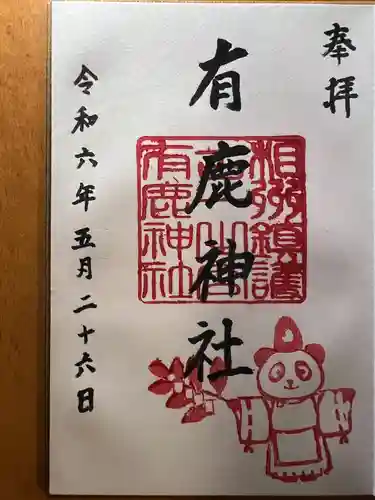 奉拝
有鹿神社
相模鎮護
有鹿神社
令和六年五月二十六日